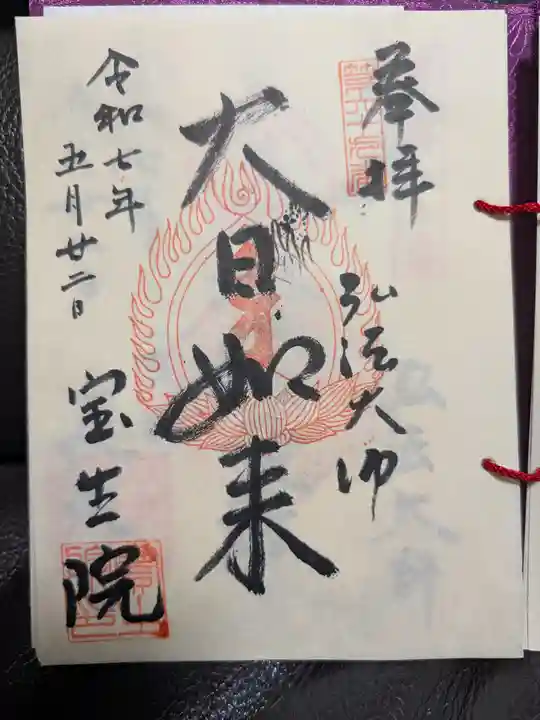 奉拝
弘法大师
大日如来
令和七年
五月廿二日
宝生院